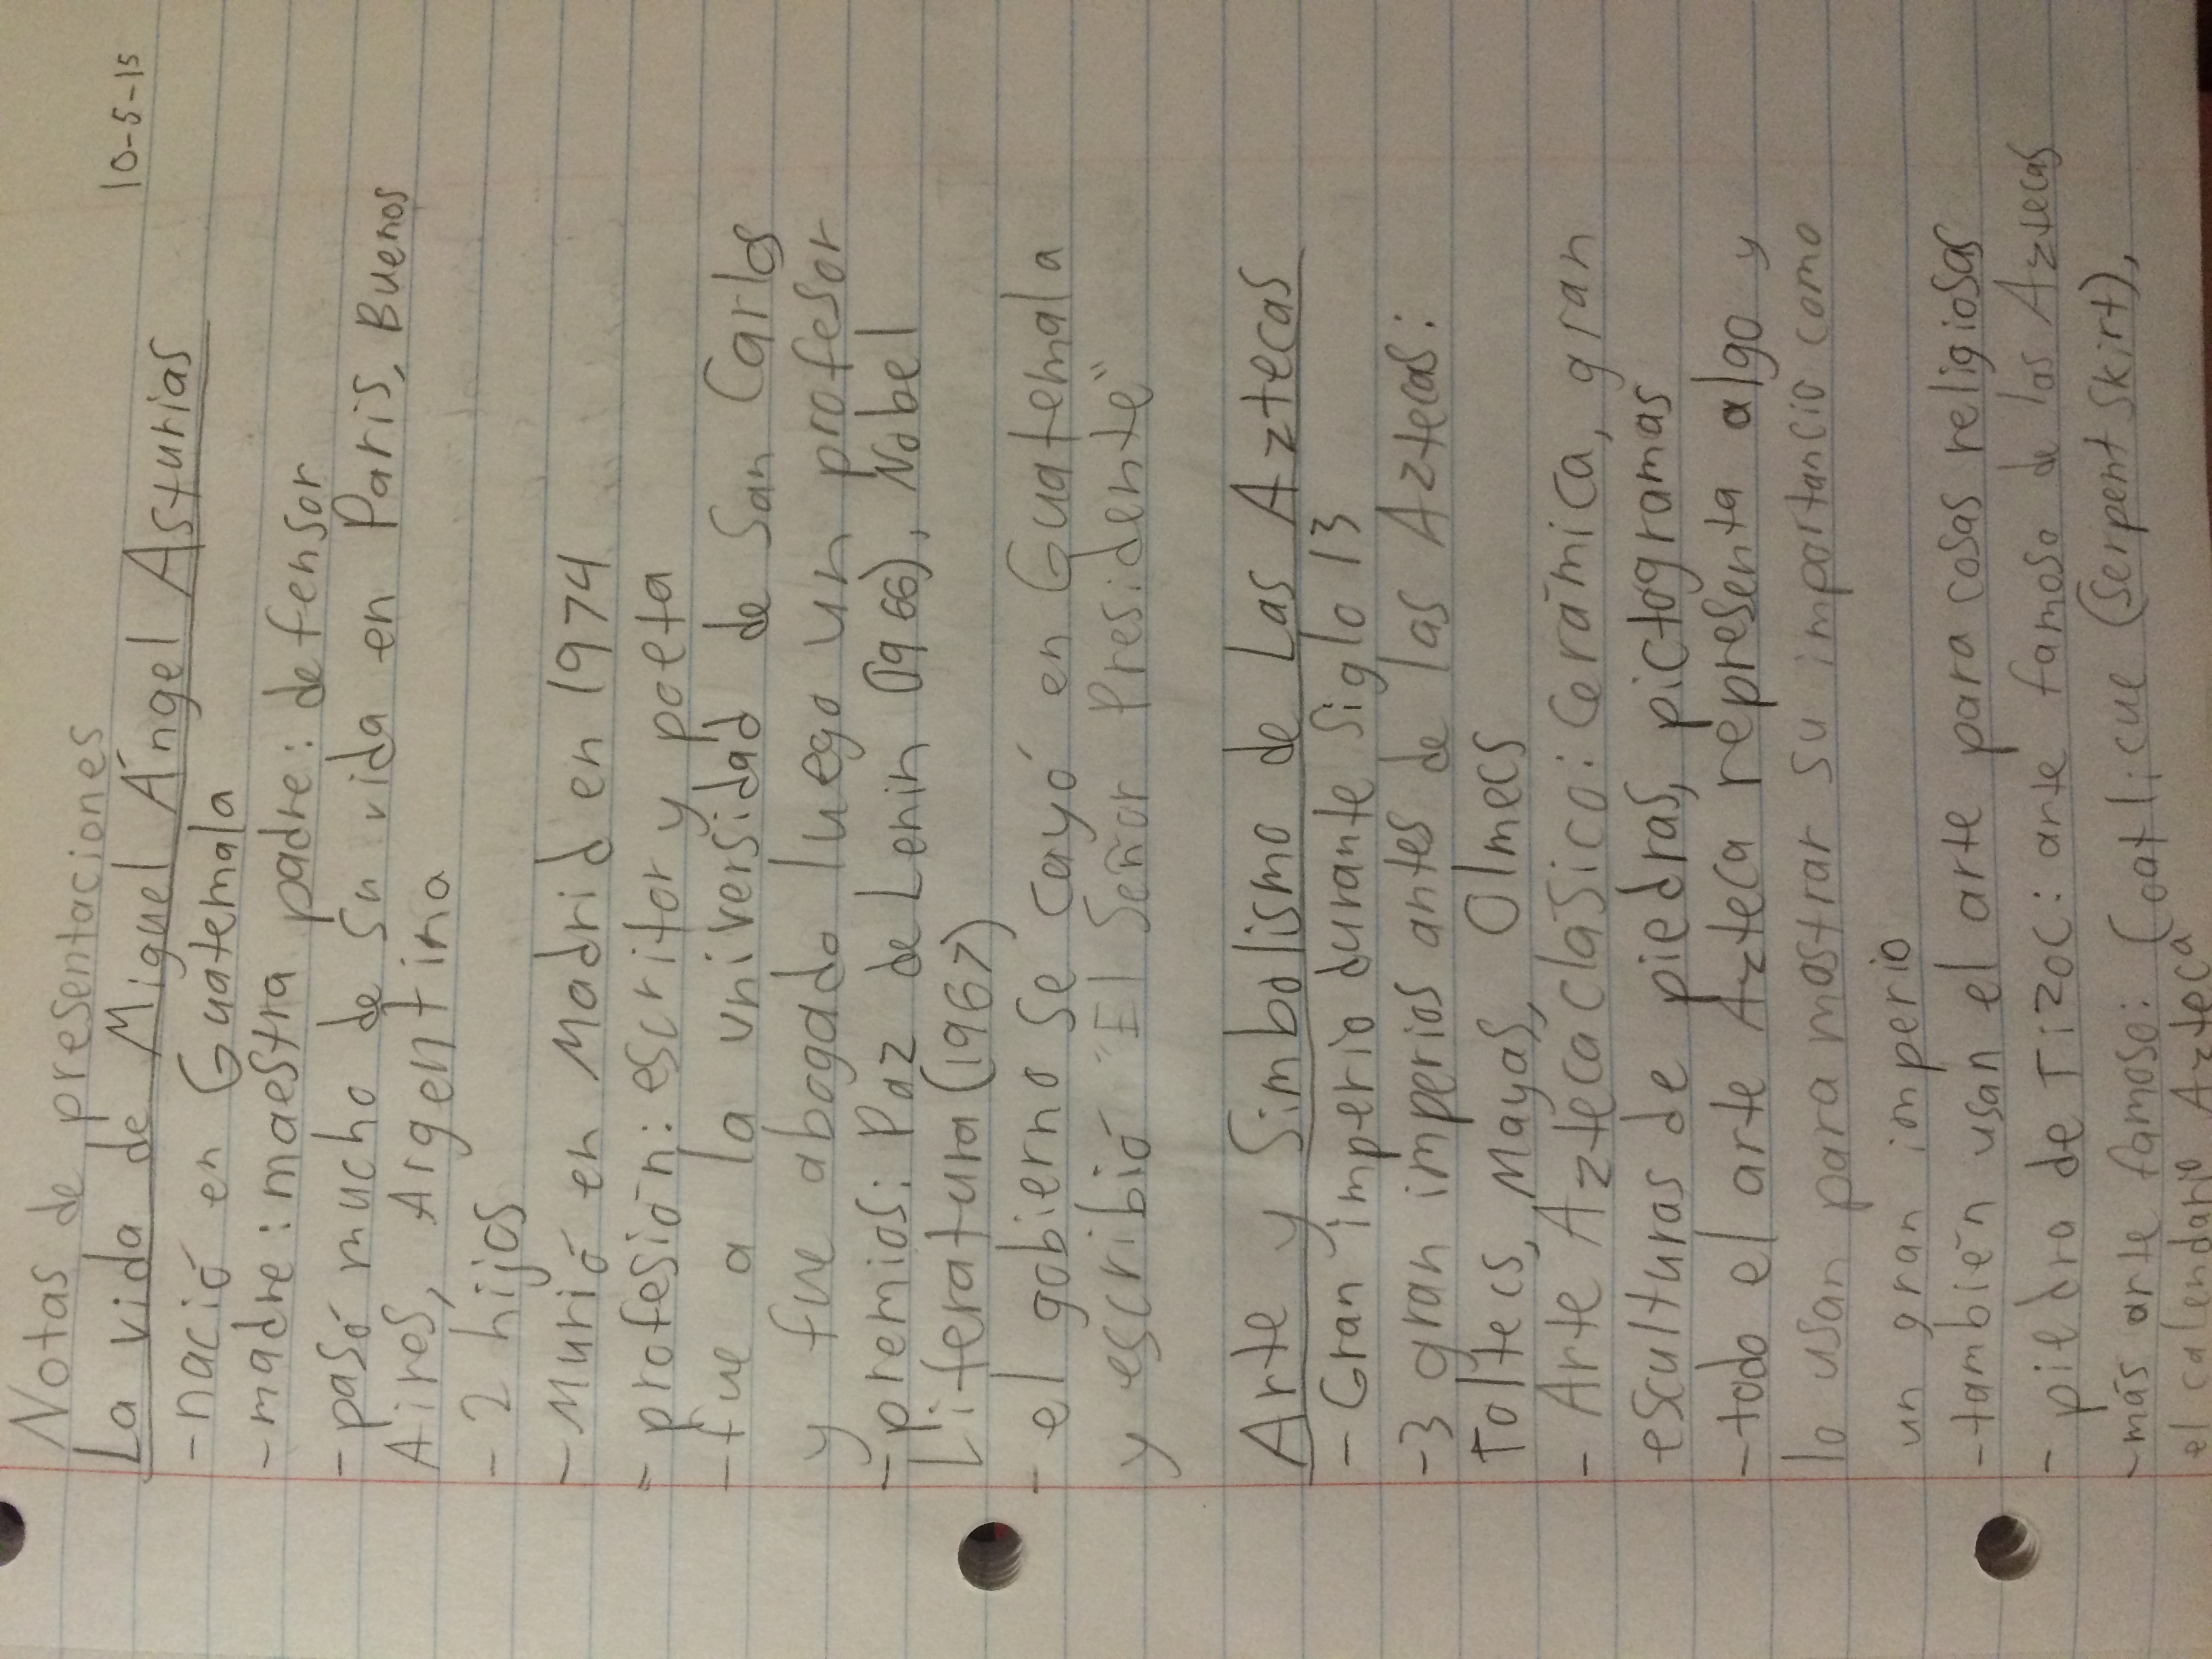 10-5-15
Notas de presentaciones
La vida de Miguel Ángel Asturias
- nació en Guatemala
- madre: maestra padre: defensor
- pasó mucho de su vida en Paris, Buenos
Aires, Argentina
- 2 hijos
- Murió en Madrid en 1974
- profesión: escritor y poeta
- fue a la universidad de San Carlos
y fue abogado luego un profesor
- premios: Paz de Lenin (1966), Nobel
Literatura (1967)
- el gobierno se cayó en Guatemala
y escribió "El Señor Presidente"
Arte y Simbolismo de Las Aztecas
- Gran imperio durante siglo 13
- 3 gran imperios antes de las Aztecas:
Toltecs, Mayas, Olmecs
- Arte Azteca clásico: Cerámica, gran
esculturas de piedras, pictogramas
- todo el arte Azteca representa algo y
lo usan para mostrar su importancio como
un gran imperio
- también usan el arte para cosas religiosas
- piedra de Tizoc: arte famoso de las Aztecas
- más arte famoso: Coatlicue (Serpent skirt),
el calendario Azteca